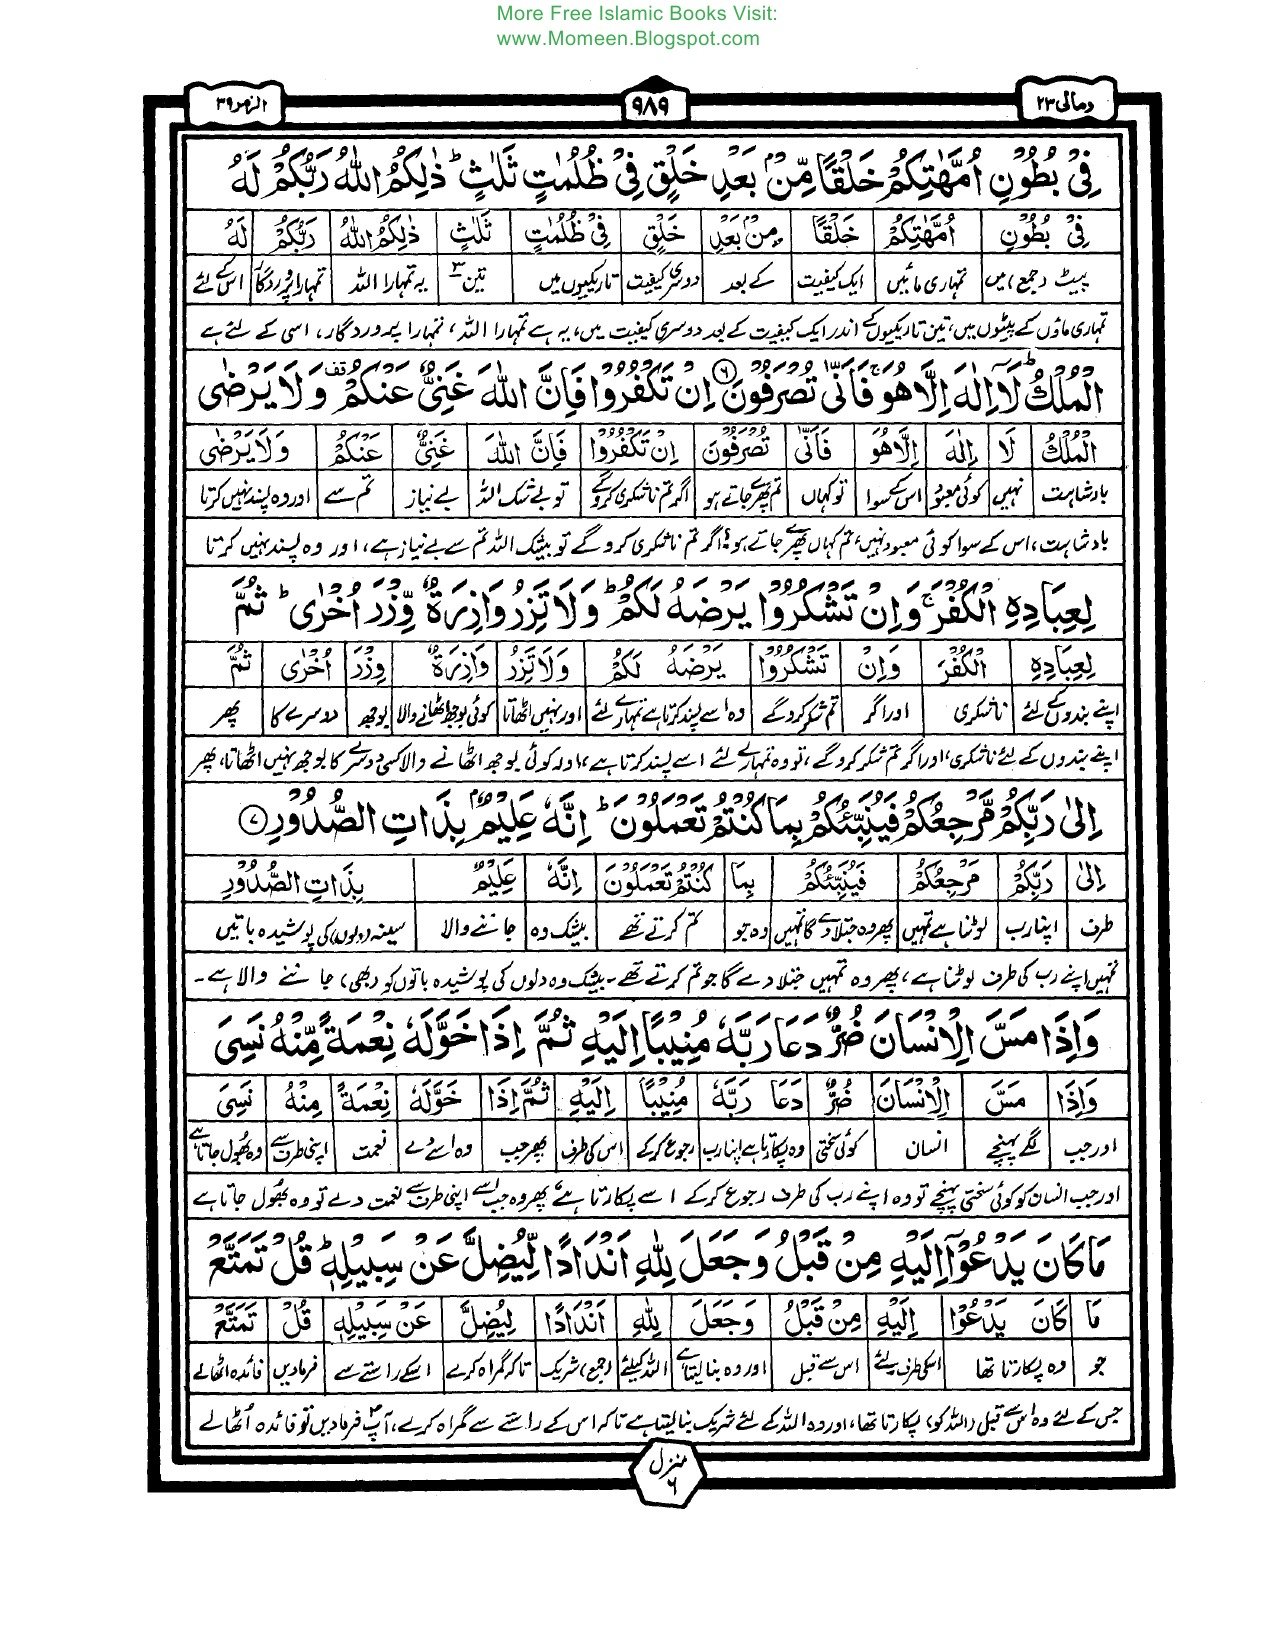 More Free Islamic Books Visit:
www.Momeen.Blogspot.com
ومالی ۲۳
۹۸۹
الزمر ۳۹
فِیْ بُطُوْنِ اُمَّهٰتِكُمْ خَلْقًا مِّنْۢ بَعْدِ خَلْقٍ فِیْ ظُلُمٰتٍ ثَلٰثٍ ؕ ذٰلِكُمُ اللّٰهُ رَبُّكُمْ لَهُ
فِیْ بُطُوْنِ اُمَّهٰتِكُمْ خَلْقًا مِنْۢ بَعْدِ خَلْقٍ فِیْ ظُلُمٰتٍ ثَلٰثٍ ذٰلِكُمُ اللّٰهُ رَبُّكُمْ لَهُ
پیٹ (جمع) میں تمہاری مائیں ایک کیفیت کے بعد دوسری کیفیت تاریکیوں میں تین ۳ یہ تمہارا اللہ تمہارا پروردگار اس کے لئے
تمہاری ماؤں کے پیٹوں میں، تین تاریکیوں کے اندر ایک کیفیت کے بعد دوسری کیفیت میں، یہ ہے تمہارا اللہ، تمہارا پروردگار، اسی کے لئے ہے
الْمُلْكُ ؕ لَاۤ اِلٰهَ اِلَّا هُوَ ۚ فَاَنّٰی تُصْرَفُوْنَ ۶ اِنْ تَكْفُرُوْا فَاِنَّ اللّٰهَ غَنِیٌّ عَنْكُمْ قف وَلَا یَرْضٰی
الْمُلْكُ لَا اِلٰهَ اِلَّا هُوَ فَاَنّٰی تُصْرَفُوْنَ اِنْ تَكْفُرُوْا فَاِنَّ اللّٰهَ غَنِیٌّ عَنْكُمْ وَلَا یَرْضٰی
بادشاہت نہیں کوئی معبود اس کے سوا تو کہاں تم پھرے جاتے ہو اگر تم ناشکری کرو گے تو بے شک اللہ بے نیاز تم سے اور وہ پسند نہیں کرتا
بادشاہت، اس کے سوا کوئی معبود نہیں، تم کہاں پھرے جاتے ہو؟ اگر تم ناشکری کرو گے تو بیشک اللہ تم سے بے نیاز ہے، اور وہ پسند نہیں کرتا
لِعِبَادِهِ الْكُفْرَ ۚ وَاِنْ تَشْكُرُوْا یَرْضَهُ لَكُمْ ؕ وَلَا تَزِرُ وَازِرَةٌ وِّزْرَ اُخْرٰی ؕ ثُمَّ
لِعِبَادِهِ الْكُفْرَ وَاِنْ تَشْكُرُوْا یَرْضَهُ لَكُمْ وَلَا تَزِرُ وَازِرَةٌ وِزْرَ اُخْرٰی ثُمَّ
اپنے بندوں کے لئے ناشکری اور اگر تم شکر کرو گے وہ اسے پسند کرتا ہے تمہارے لئے اور نہیں اٹھاتا کوئی بوجھ اٹھانے والا بوجھ دوسرے کا پھر
اپنے بندوں کے لئے ناشکری، اور اگر تم شکر کرو گے، تو وہ تمہارے لئے اسے پسند کرتا ہے، اور کوئی بوجھ اٹھانے والا کسی دوسرے کا بوجھ نہیں اٹھاتا، پھر
اِلٰی رَبِّكُمْ مَّرْجِعُكُمْ فَیُنَبِّئُكُمْ بِمَا كُنْتُمْ تَعْمَلُوْنَ ؕ اِنَّهٗ عَلِیْمٌۢ بِذَاتِ الصُّدُوْرِ ۷
اِلٰی رَبِّكُمْ مَرْجِعُكُمْ فَیُنَبِّئُكُمْ بِمَا كُنْتُمْ تَعْمَلُوْنَ اِنَّهٗ عَلِیْمٌ بِذَاتِ الصُّدُوْرِ
طرف اپنا رب لوٹنا ہے تمہیں پھر وہ جتلا دے گا تمہیں وہ جو تم کرتے تھے بیشک وہ جاننے والا سینہ (دلوں) کی پوشیدہ باتیں
تمہیں اپنے رب کی طرف لوٹنا ہے، پھر وہ تمہیں جتلا دے گا جو تم کرتے تھے۔ بیشک وہ دلوں کی پوشیدہ باتوں کو (بھی) جاننے والا ہے۔
وَاِذَا مَسَّ الْاِنْسَانَ ضُرٌّ دَعَا رَبَّهٗ مُنِیْبًا اِلَیْهِ ثُمَّ اِذَا خَوَّلَهٗ نِعْمَةً مِّنْهُ نَسِیَ
وَاِذَا مَسَّ الْاِنْسَانَ ضُرٌّ دَعَا رَبَّهٗ مُنِیْبًا اِلَیْهِ ثُمَّ اِذَا خَوَّلَهٗ نِعْمَةً مِنْهُ نَسِیَ
اور جب لگے پہنچے انسان کوئی سختی وہ پکارتا ہے اپنا رب رجوع کر کے اس کی طرف پھر جب وہ اسے دے نعمت اپنی طرف سے وہ بھول جاتا ہے
اور جب انسان کو کوئی سختی پہنچے تو وہ اپنے رب کی طرف رجوع کر کے اسے پکارتا ہے، پھر وہ جب اسے اپنی طرف سے نعمت دے تو وہ بھول جاتا ہے
مَا كَانَ یَدْعُوْۤا اِلَیْهِ مِنْ قَبْلُ وَجَعَلَ لِلّٰهِ اَنْدَادًا لِّیُضِلَّ عَنْ سَبِیْلِهٖ ؕ قُلْ تَمَتَّعْ
مَا كَانَ یَدْعُوْا اِلَیْهِ مِنْ قَبْلُ وَجَعَلَ لِلّٰهِ اَنْدَادًا لِیُضِلَّ عَنْ سَبِیْلِهٖ قُلْ تَمَتَّعْ
جو وہ پکارتا تھا اسکی طرف لئے اس سے قبل اور وہ بنا لیتا ہے اللہ کیلئے (جمع) شریک تاکہ گمراہ کرے اسکے راستے سے فرما دیں فائدہ اٹھالے
جس کے لئے وہ اس سے قبل (اللہ کو) پکارتا تھا، اور وہ اللہ کے لئے شریک بنا لیتا ہے تاکہ اس کے راستے سے گمراہ کرے، آپؐ فرما دیں تو فائدہ اٹھالے
منزل ۶